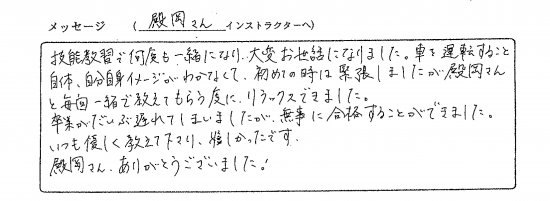 メッセージ （ 殿岡さん インストラクターへ）
技能教習で何度も一緒になり、大変お世話になりました。車を運転すること
自体、自分自身イメージがわかなくて、初めての時は緊張しましたが殿岡さん
と毎回一緒で教えてもらう度に、リラックスできました。
卒業がだいぶ遅れてしまいましたが、無事に合格することができました。
いつも優しく教えて下さり、嬉しかったです。
殿岡さん、ありがとうございました！